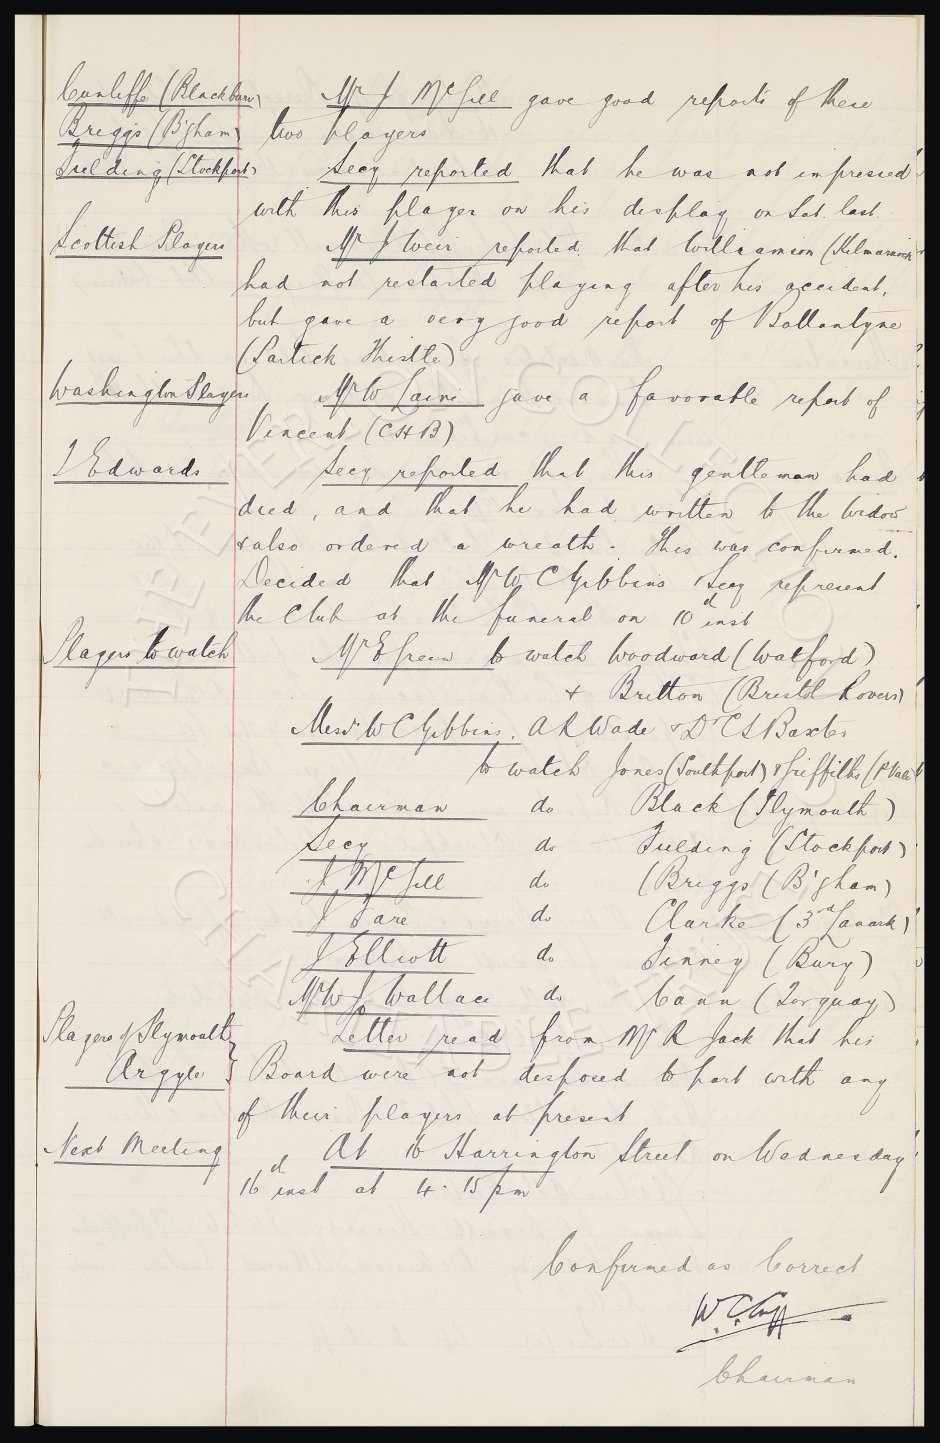 Cunliffe (Blackburn) Mr J McGill gave good reports of these
Briggs (B'gham) two players
Fielding (Stockport) Secy reported that he was not impressed
with this player on his display on Sat. last.
Scottish Players Mr J Weir reported that Williamson (Kilmarnock)
had not restarted playing after his accident,
but gave a very good report of Ballantyne
(Partick Thistle)
Washington Players Mr W Laird gave a favorable report of
Vincent (CHB)
J Edwards Secy reported that this gentleman had
died, and that he had written to the Widow
& also ordered a wreath. This was confirmed.
Decided that Mr W C Gibbins Secy represent
the Club at the funeral on 10d inst
Players to watch Mr E Green to watch Woodward (Watford)
& Britton (Bristol Rovers)
Messrs W C Gibbins, A R Wade & Dr C S Baxter
to watch Jones (Southport) & Griffiths (P Vale)
Chairman do Black (Plymouth)
Secy do Fielding (Stockport)
J McGill do (Briggs (B'gham)
J Fare do Clarke (3rd Lanark)
J Elliott do Finney (Bury)
Mr W J Wallace do Cann (Torquay)
Players of Plymouth Letter read from Mr R Jack that his
Argyle Board were not disposed to part with any
of their players at present
Next Meeting At 16 Harrington Street on Wednesday
16d inst at 4.15 pm
Confirmed as Correct
W.C. Cuff
Chairman
THE EVERTON COLLECTION
CHARITABLE TRUST